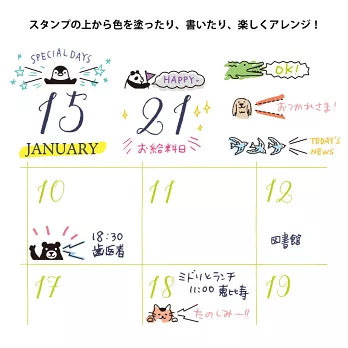 スタンプの上から色を塗ったり、書いたり、楽しくアレンジ！
SPECIAL DAYS
HAPPY
OK!
15
21
おつかれさま!
JANUARY
お給料日
TODAY'S
NEWS
10
11
12
18:30
歯医者
図書館
17
18
ミドリとランチ
11:00 恵比寿
19
たのしみ〜!!